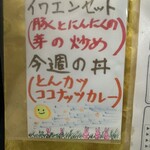 イワエンセット
(豚とにんにくの
芽の炒め)
今週の丼
(とんカツ
ココナッツカレー)